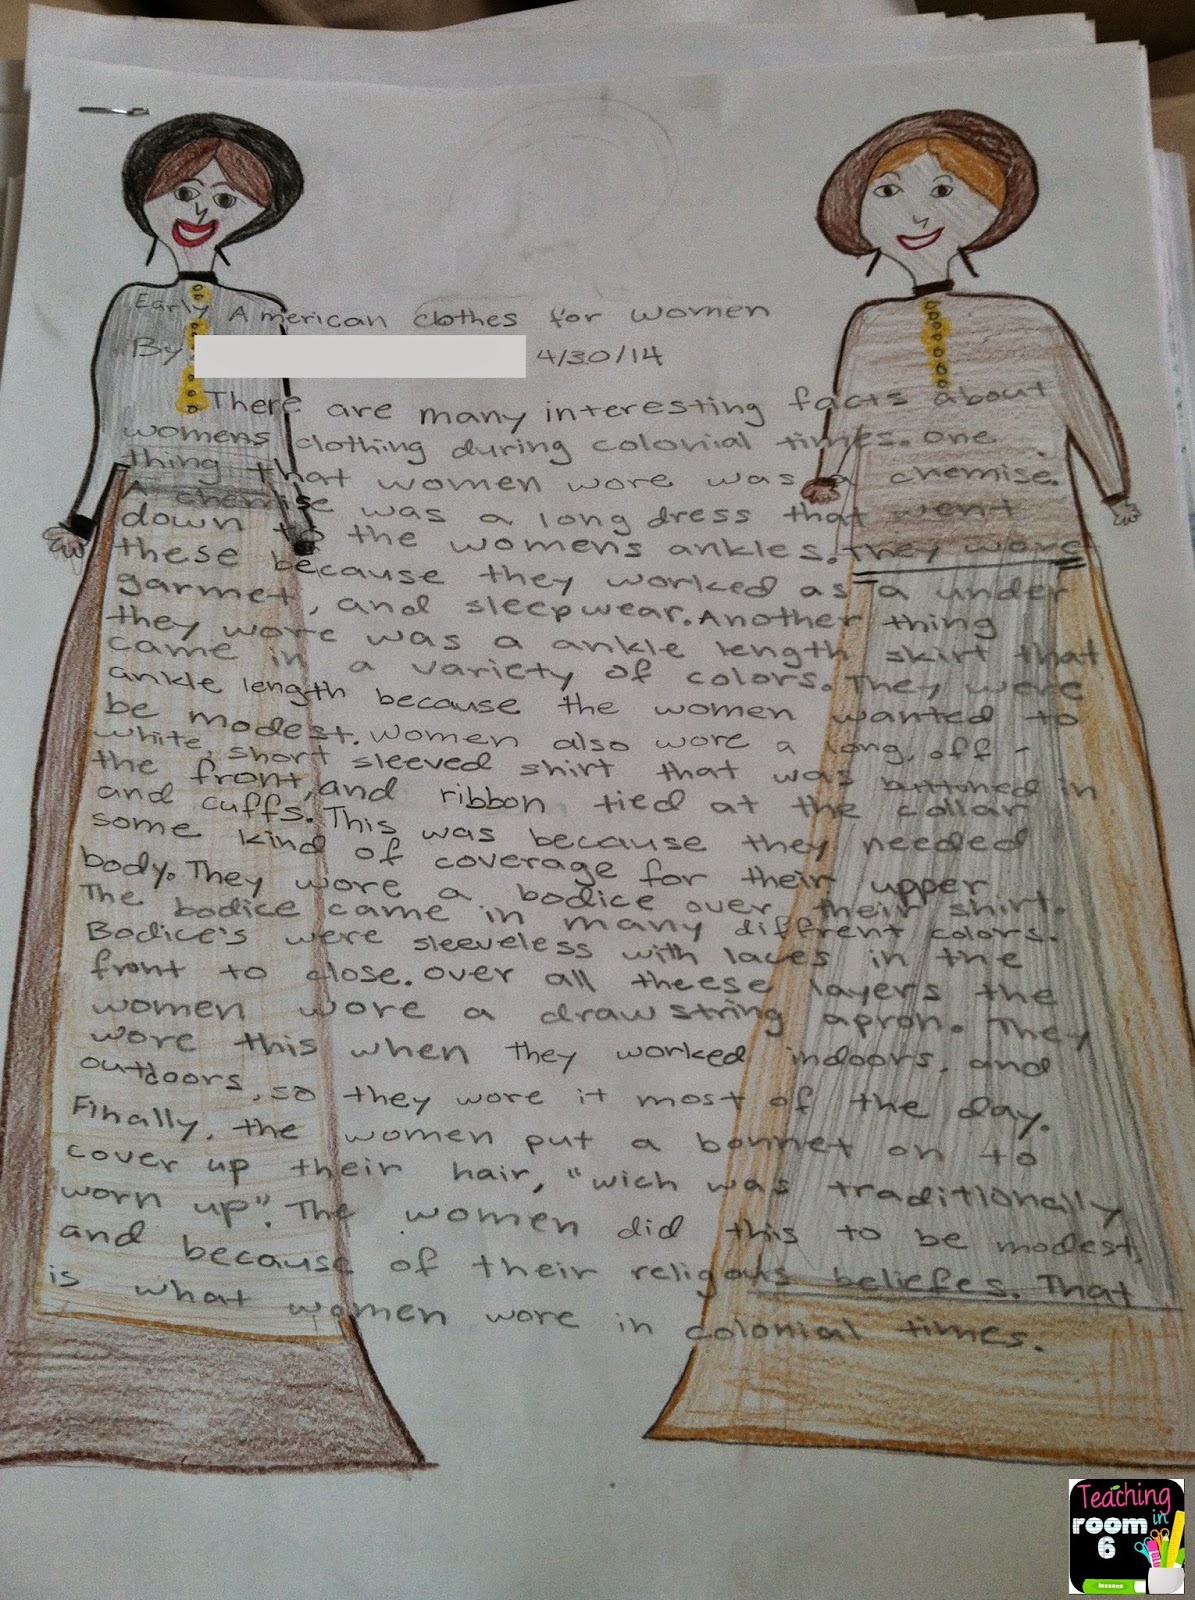 Early American clothes for women
By 4/30/14
There are many interesting facts about
womens clothing during colonial times. One
thing that women wore was a chemise.
A chemise was a long dress that went
down to the womens ankles. They wore
these because they worked as a under
garmet, and sleepwear. Another thing
they wore was a ankle length skirt that
came in a variety of colors. They were
ankle length because the women wanted to
be modest. Women also wore a long, off-
white, short sleeved shirt that was buttoned in
the front, and ribbon tied at the collar
and cuffs. This was because they needed
some kind of coverage for their upper
body. They wore a bodice over their shirt.
The bodice came in many different colors.
Bodice's were sleeveless with laces in the
front to close. Over all theese layers the
women wore a drawstring apron. They
wore this when they worked indoors, and
outdoors, so they wore it most of the day.
Finally, the women put a bonnet on to
cover up their hair, "wich was traditionally
worn up". The women did this to be modest,
and because of their religous beliefes. That
is what women wore in colonial times.
Teaching
in
room
6
lessons